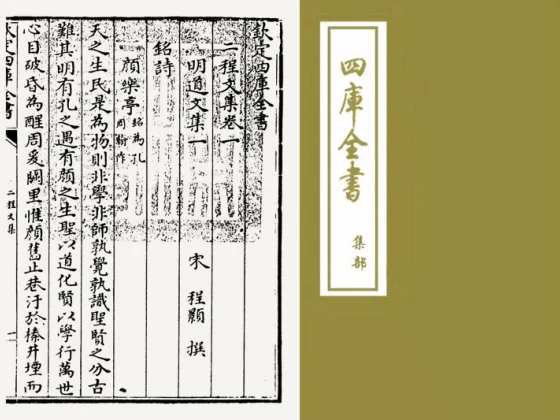 欽定四庫全書
二程文集卷一
明道文集一 宋 程顥 撰
銘詩
顏樂亭 銘為孔
周翰作
天之生民是為物則非學非師孰覺孰識聖賢之分古
難其明有孔之遇有顏之生聖以道化賢以學行萬世
心目破昏為醒周爰闕里惟顏舊止巷汙於榛井堙而
欽定四庫全書
二程文集
一
四庫全書
集部